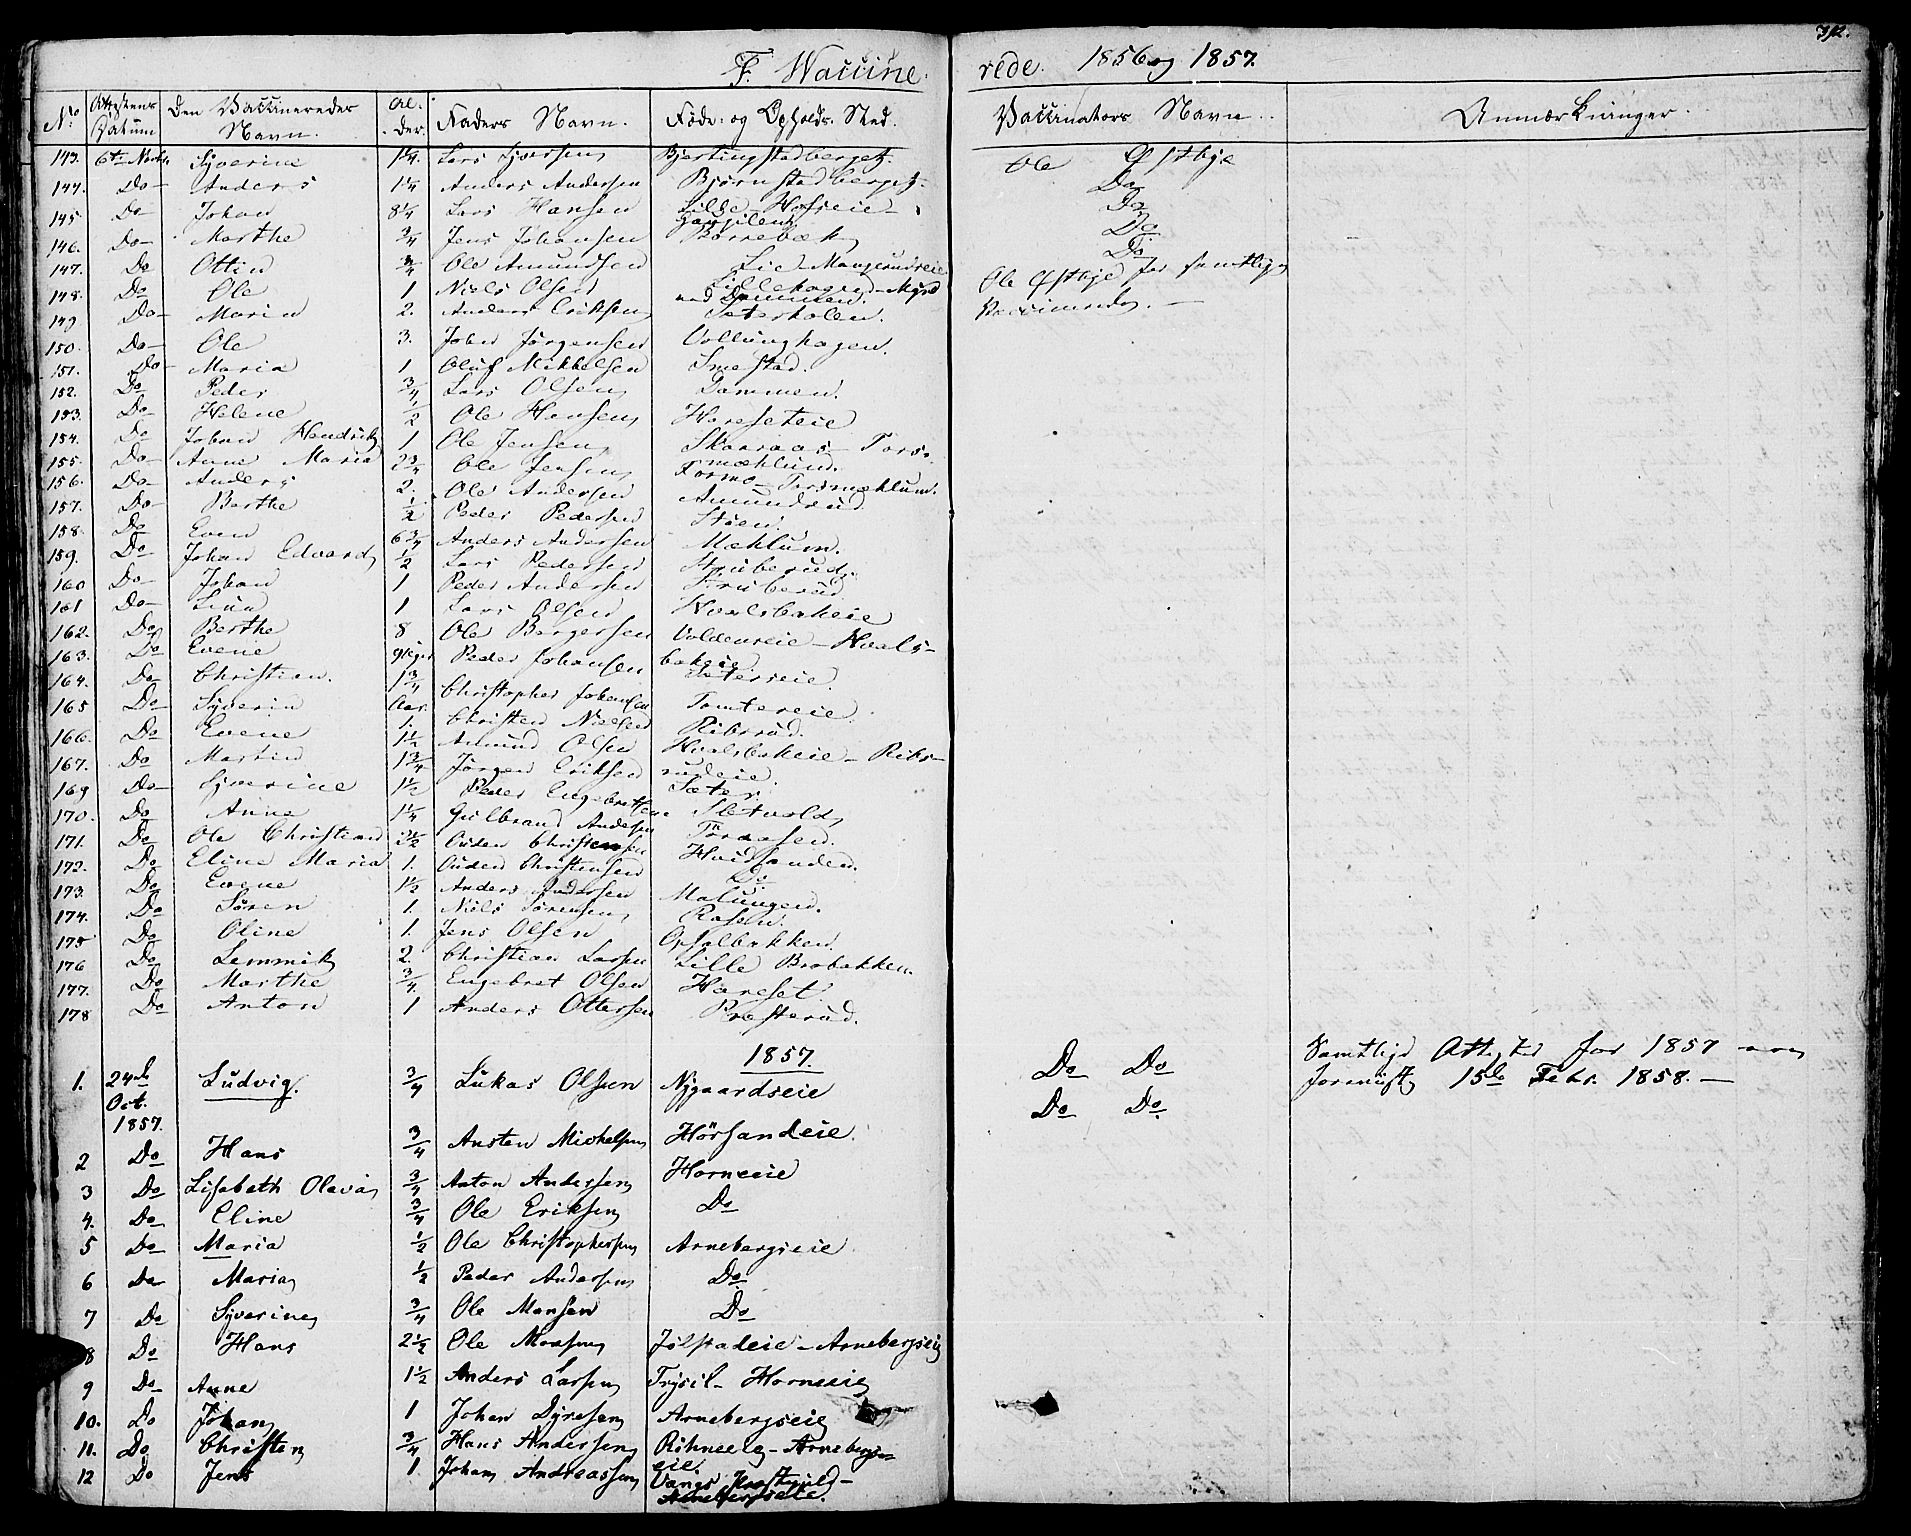 312.
F. Waccine rede. 1856 og 1857.
No. Attestens Datum Den Vaccineredes Navn. Al. der. Faders Navn. Føde- og Opholds. Sted. Vaccinators Navn. Anmærkninger.
143. 6te Syverine 1¼. Lars Syversen Ole Østbye
144. Do Anders 1¼ Anders Andersen Bjørnstadberget. Do
145 Do Johan 8¼ Lars Hansen Lilde-Hofseie Do
146. Do Marthe ¾ Jens Johansen Borrebæk Do
147. Do Ottin ¾ Ole Amundsen Lie-Mangerudseie Do
148. Do Ole 1 Niels Olsen Ole Østbye for samtlige
ved Dammen.
149 Do Marin 2. Anders Eriksen Seterholen. Vaccinerede.
150. Do Ole 3. John Jørgensen Vollunghagen.
151. Do Maria 1 Oluf Mikkelsen Smestad.
152. Do Peder ¾ Lars Olsen Dammen.
153. Do Helene ½ Ole Hansen Hareseteie
154. Do Johan Hendrik 1 Ole Jensen Skaraas-Tors-
155. Do Anne Maria 2¾ Ole Jensen mæhlum.
156. Do Anders 2. Ole Andersen Formo-Torsmæhlum.
157. Do Berthe ½ Peder Pedersen Amundrud
158. Do Even 6¾ Anders Andersen Støen.
159. Do Johan Edvard ½ Lars Pedersen Mæhlum.
160 Do Johan 1 Peder Andersen Struberud.
161 Do Lina 1 Lars Olsen Struberud
162. Do Berthe 8 Ole Bergersen Hvalsbakeie
163. Do Evene Peder Johansen Voldenseie-Hvals-
bakeie.
164. Do Christian. 1¾ Christopher Johansen Seterseie.
165 Do Syverin Aar. 1. Christen Nielsen Tomtereie.
166. Do Evene 1½ Amund Olsen Ribsrud.
167. Do Martin 1¾ Jørgen Eriksen Hvalsbakeie-Ribs-
rudeie.
169 Do Syverine 1½ Peder Engebretsen Sæter.
170. Do Anne 1¼ Gulbrand Andersen Sletvold
171. Do Ole Christian 3½ Ouden Christensen Toraasen.
172. Do Eline Maria 1. Ouden Christensen Hvidsanden.
173. Do Evene 1½ Anders Andersen Do
174. Do Søren 1. Niels Sørensen Malungen.
175 Do Oline 1. Jens Olsen Rasen.
176 Do Lemmik 2. Christian Larsen Opsalbakken.
177. Do Marthe ¾. Engebret Olsen Lille Brobakken.
178 Do Anton 1 Anders Ottersen Hareset.
Presterud.
1857.
1. 24de Ludvig. ¾ Lukas Olsen Nygaardseie Do Do Samtlige Attester for 1857
Oct. Do Do 15de Febr. 1858.
1857.
2 Do Hans ¾ Austen Michelsen Hörsandeie.
3 Do Lisabeth Olava ¾ Anton Andersen Horneeie
4. Do Eline ¾ Ole Eriksen Do
5 Do Maria ½ Ole Christophersen Arnebergseie
6 Do Maria ½ Peder Andersen Do
7 Do Syverine ¾ Ole Monsen Do
8 Do Hans 2½ Ole Jølstadeie-Arnebergseie
9 Do Anne 1½ Anders Larsen Trysil-Horneeie
10. Do Johan 1 Johan Dyresen Arnebergseie
11. Do Christen ¾ Hans Andersen Röhneeie-Arnebergs-
eie.
12 Do Jens 1. Johan Andreassen
Arnebergseie.